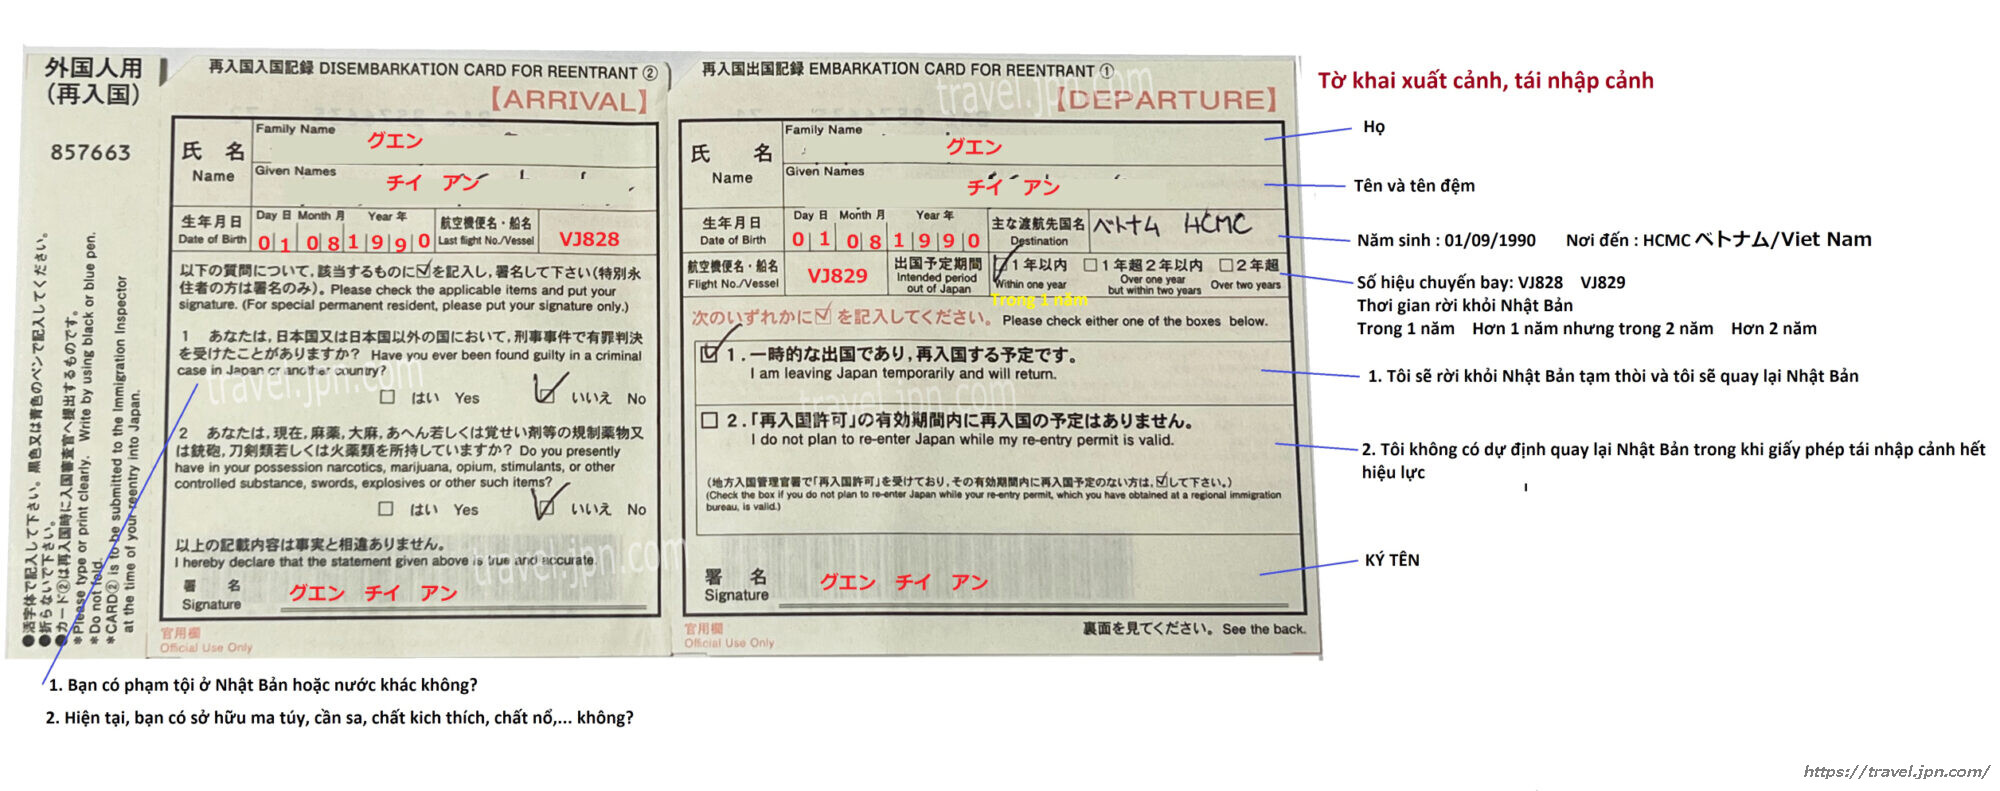 外国人用
(再入国)
857663
●活字体で記入して下さい。黒色又は青色のペンで記入してください。
●折らないで下さい。
●カード②は再入国時に入国審査官へ提出するものです。
*Please type or print clearly. Write by using black or blue pen.
*Do not fold.
*CARD② is to be submitted to the Immigration Inspector
at the time of your reentry into Japan.
再入国入国記録 DISEMBARKATION CARD FOR REENTRANT ②
【ARRIVAL】
氏 名
Name
Family Name
グエン
Given Names
チイ アン
生年月日
Date of Birth
Day 日 Month 月 Year 年
0 1 0 8 1 9 9 0
航空機便名・船名
Last flight No./Vessel
VJ828
以下の質問について,該当するものに☑を記入し,署名して下さい(特別永
住者の方は署名のみ)。Please check the applicable items and put your
signature. (For special permanent resident, please put your signature only.)
1 あなたは,日本国又は日本国以外の国において,刑事事件で有罪判決
を受けたことがありますか? Have you ever been found guilty in a criminal
case in Japan or another country?
□ はい Yes ☑ いいえ No
2 あなたは,現在,麻薬,大麻,あへん若しくは覚せい剤等の規制薬物又
は銃砲,刀剣類若しくは火薬類を所持していますか? Do you presently
have in your possession narcotics, marijuana, opium, stimulants, or other
controlled substance, swords, explosives or other such items?
□ はい Yes ☑ いいえ No
以上の記載内容は事実と相違ありません。
I hereby declare that the statement given above is true and accurate.
署 名
Signature
グエン チイ アン
官用欄
Official Use Only
再入国出国記録 EMBARKATION CARD FOR REENTRANT ①
【DEPARTURE】
氏 名
Name
Family Name
グエン
Given Names
チイ アン
生年月日
Date of Birth
Day 日 Month 月 Year 年
0 1 0 8 1 9 9 0
主な渡航先国名
Destination
ベトナム HCMC
航空機便名・船名
Flight No./Vessel
VJ829
出国予定期間
Intended period
out of Japan
☑1年以内
Within one year
Trong 1 năm
□1年超2年以内
Over one year
but within two years
□2年超
Over two years
次のいずれかに☑を記入してください。 Please check either one of the boxes below.
☑ 1.一時的な出国であり,再入国する予定です。
I am leaving Japan temporarily and will return.
□ 2.「再入国許可」の有効期間内に再入国の予定はありません。
I do not plan to re-enter Japan while my re-entry permit is valid.
(地方入国管理官署で「再入国許可」を受けており,その有効期間内に再入国予定のない方は,☑して下さい。)
(Check the box if you do not plan to re-enter Japan while your re-entry permit, which you have obtained at a regional immigration
bureau, is valid.)
署 名
Signature
グエン チイ アン
官用欄
Official Use Only
裏面を見てください。See the back.
travel.jpn.com
travel.jpn.com
travel.jpn.com
travel.jpn.com
Tờ khai xuất cảnh, tái nhập cảnh
Họ
Tên và tên đệm
Năm sinh : 01/09/1990 Nơi đến : HCMC ベトナム/Viet Nam
Số hiệu chuyến bay: VJ828 VJ829
Thơi gian rời khỏi Nhật Bản
Trong 1 năm Hơn 1 năm nhưng trong 2 năm Hơn 2 năm
1. Tôi sẽ rời khỏi Nhật Bản tạm thòi và tôi sẽ quay lại Nhật Bản
2. Tôi không có dự định quay lại Nhật Bản trong khi giấy phép tái nhập cảnh hết
hiệu lực
KÝ TÊN
1. Bạn có phạm tội ở Nhật Bản hoặc nước khác không?
2. Hiện tại, bạn có sở hữu ma túy, cần sa, chất kich thích, chất nổ,... không?
https://travel.jpn.com/